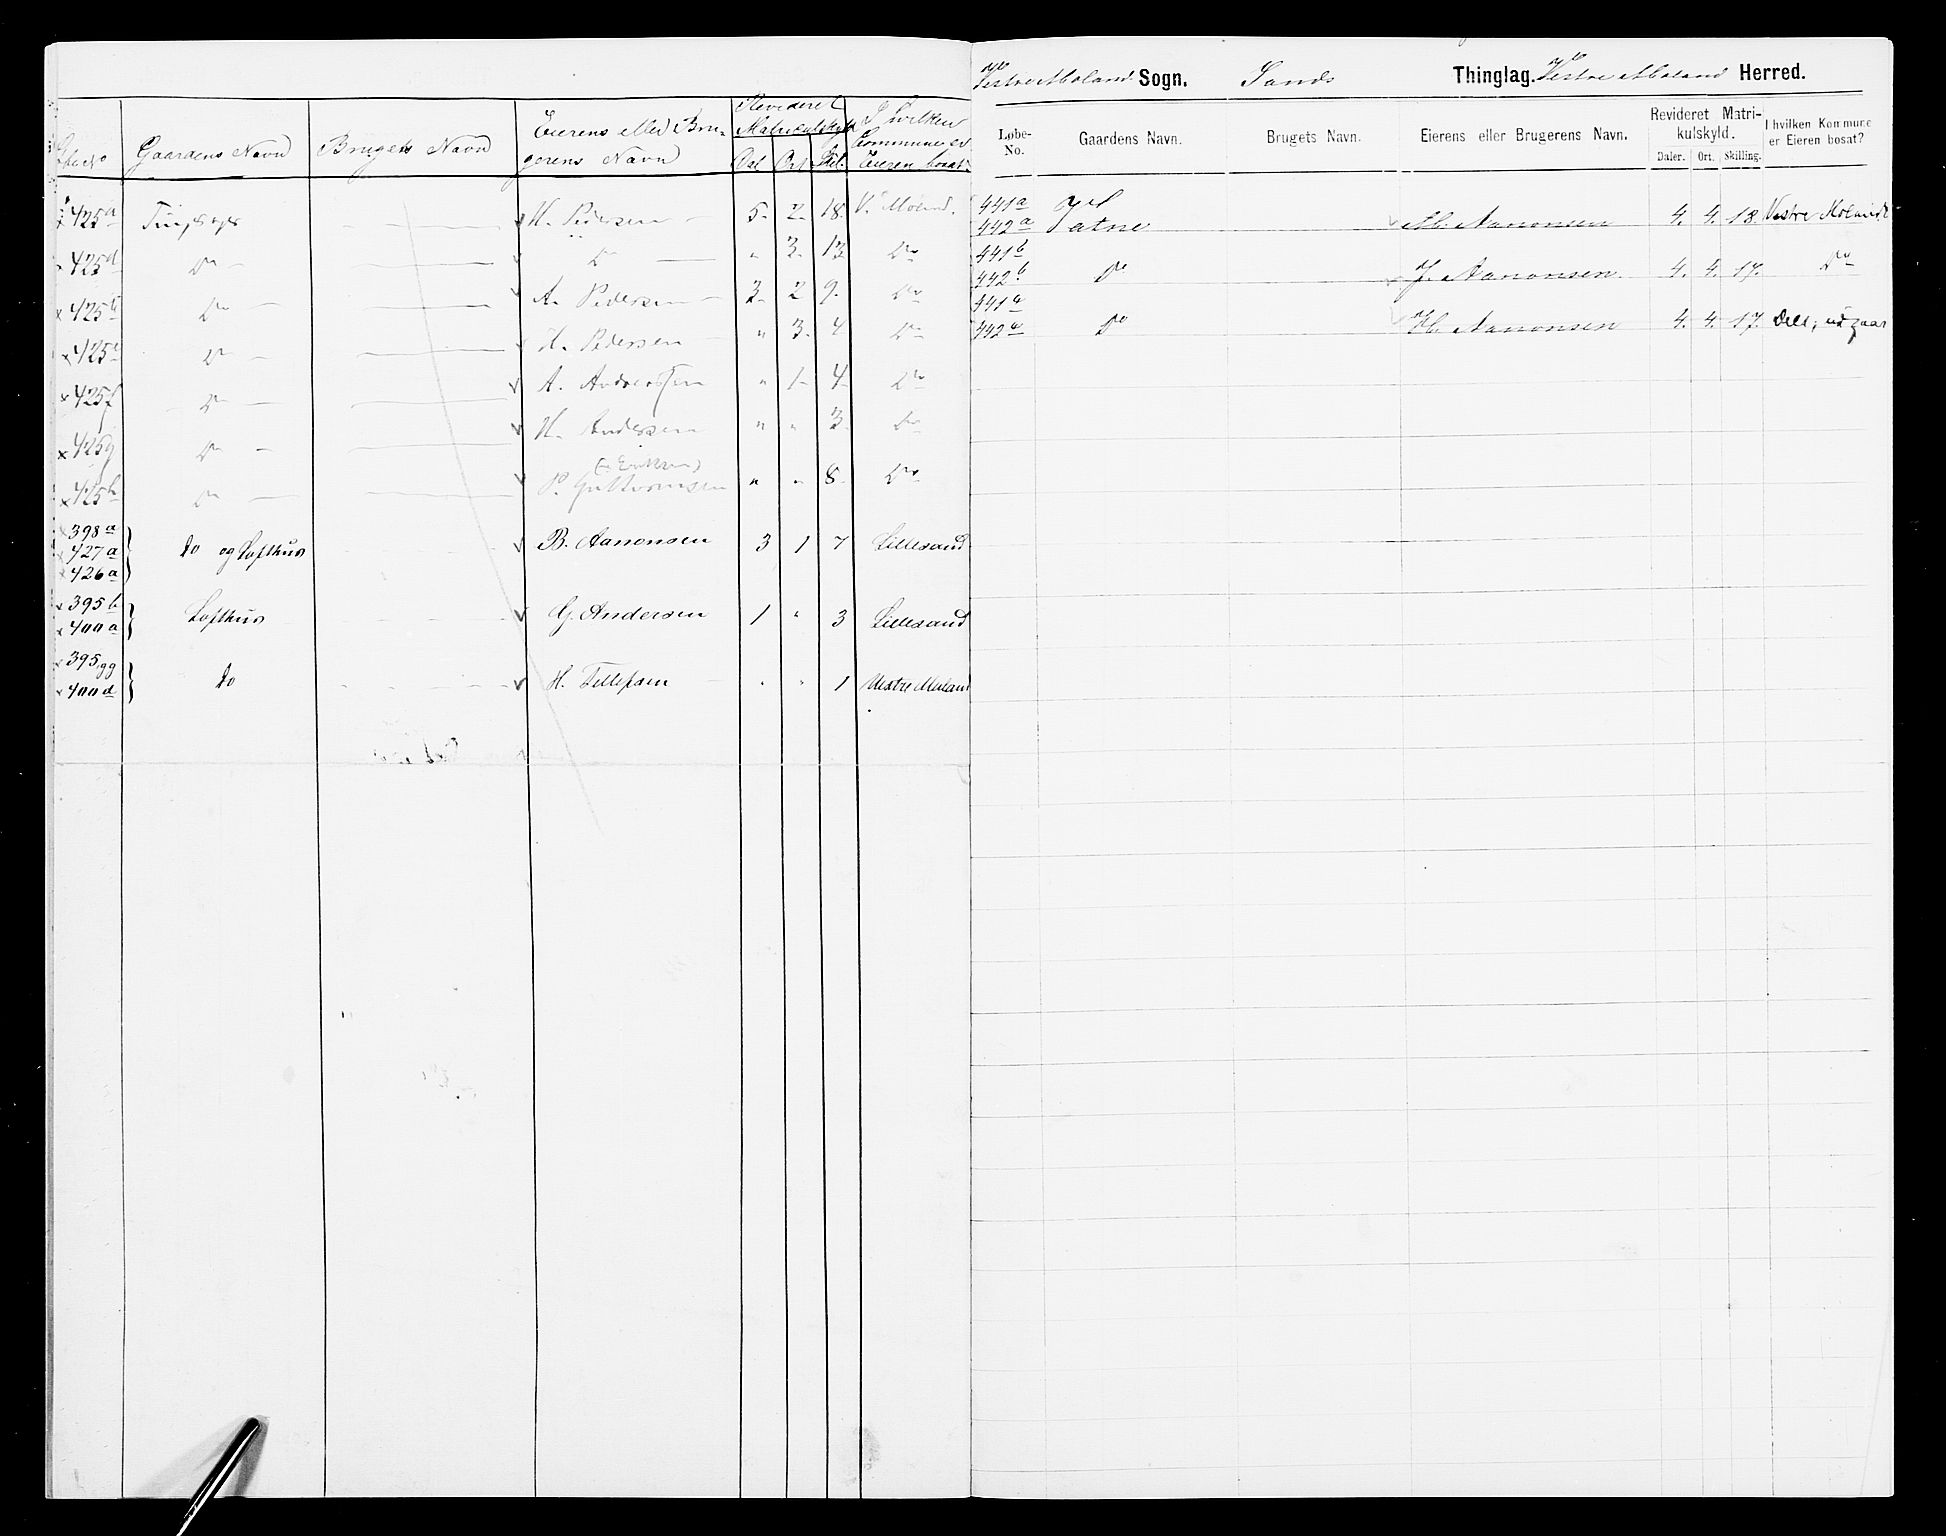 Gaardens Navn Brugets Navn Eierens eller Bru-
gerens Navn Revideret
Matriculskyld
Dal Ort Skl. I hvilken
Commune er
Eieren bosat.
425a H. Pedersen 5. 2. 18. V. Moland.
425d Do Do " 3. 13 Do
425 Do A. Pedersen 3. 2 9. Do
425 Do H. Pedersen " 3. 4 Do
425f Do A. Andersen " 1. 4. Do
425g Do H. Andersen " " 3. Do
425h Do P. Guttormsen " " 8. Do
398a
427a Do og Lofthus B. Aanonsen 3 1 7 Lillesand
426a
395b
400a Lofthus G. Andersen 1 " 3 Lillesand
395gg
400d Do H. Tellefsen " " 1 Vestre Moland
Vestre Moland Sogn. Sands Thinglag. Vestre Moland Herred.
Løbe-
No. Gaardens Navn. Brugets Navn. Eierens eller Brugerens Navn. Revideret Matri-
kulskyld.
Daler. Ort. Skilling. I hvilken Kommune
er Eieren bosat?
441a
442a Aanonsen 4. 4. 18. Vestre Moland
441b
442b Do J. Aanonsen 4. 4. 17. Do
441
442 Do Aanonsen 4. 4. 17. Delt, udgaar